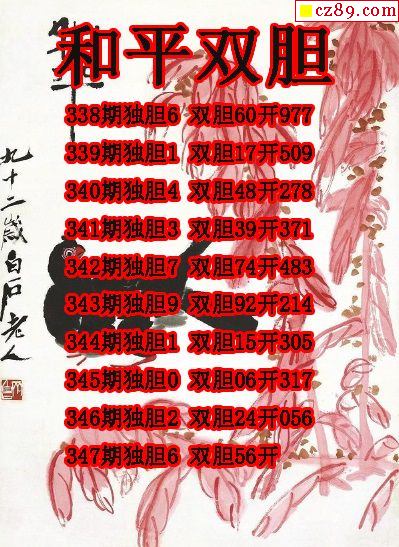 cz89.com
和平双胆
338期独胆6 双胆60开977
339期独胆1 双胆17开509
340期独胆4 双胆48开278
341期独胆3 双胆39开371
342期独胆7 双胆74开483
343期独胆9 双胆92开214
344期独胆1 双胆15开305
345期独胆0 双胆06开317
346期独胆2 双胆24开056
347期独胆6 双胆56开
九十二岁白石老人